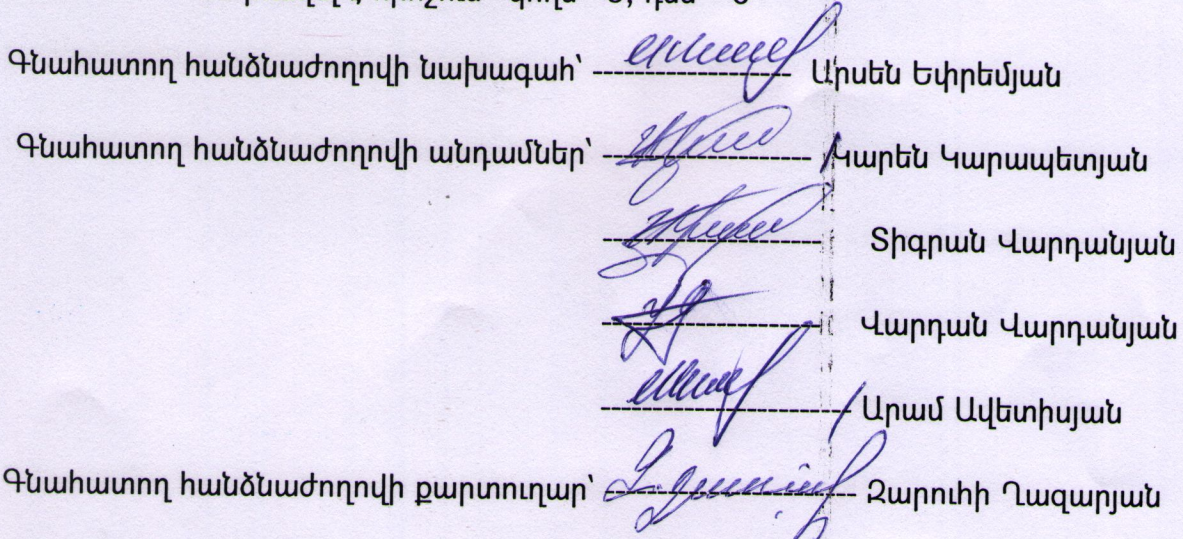 Գնահատող հանձնաժողովի նախագահ՝ -------------------- Արսեն Եփրեմյան
Գնահատող հանձնաժողովի անդամներ՝ -------------------- Կարեն Կարապետյան
-------------------- Տիգրան Վարդանյան
-------------------- Վարդան Վարդանյան
-------------------- Արամ Ավետիսյան
Գնահատող հանձնաժողովի քարտուղար՝ -------------------- Զարուհի Ղազարյան